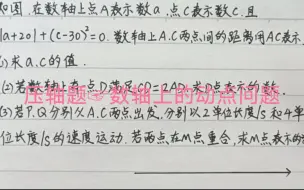 如图,在数轴上点A表示数a,点C表示数C,且
|a+20|+(c-30)²=0.数轴上A.C两点间的距离用AC表示.
①求a.c的值.
(2)若数轴上有一点D满足CD=2AD,求D点表示的数.
压轴题 数轴上的动点问题
(3)若P.Q分别从A.C两点出发,分别以2单位长度/s和4单
位长度/s的速度运动.若两点在M点重合,求M点表示的